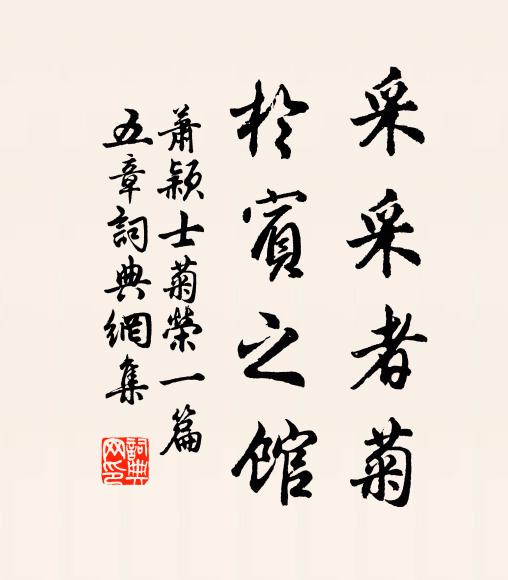 采采者菊
於賓之館
蕭穎士菊榮一篇
五章詞典網集
詞典
网印